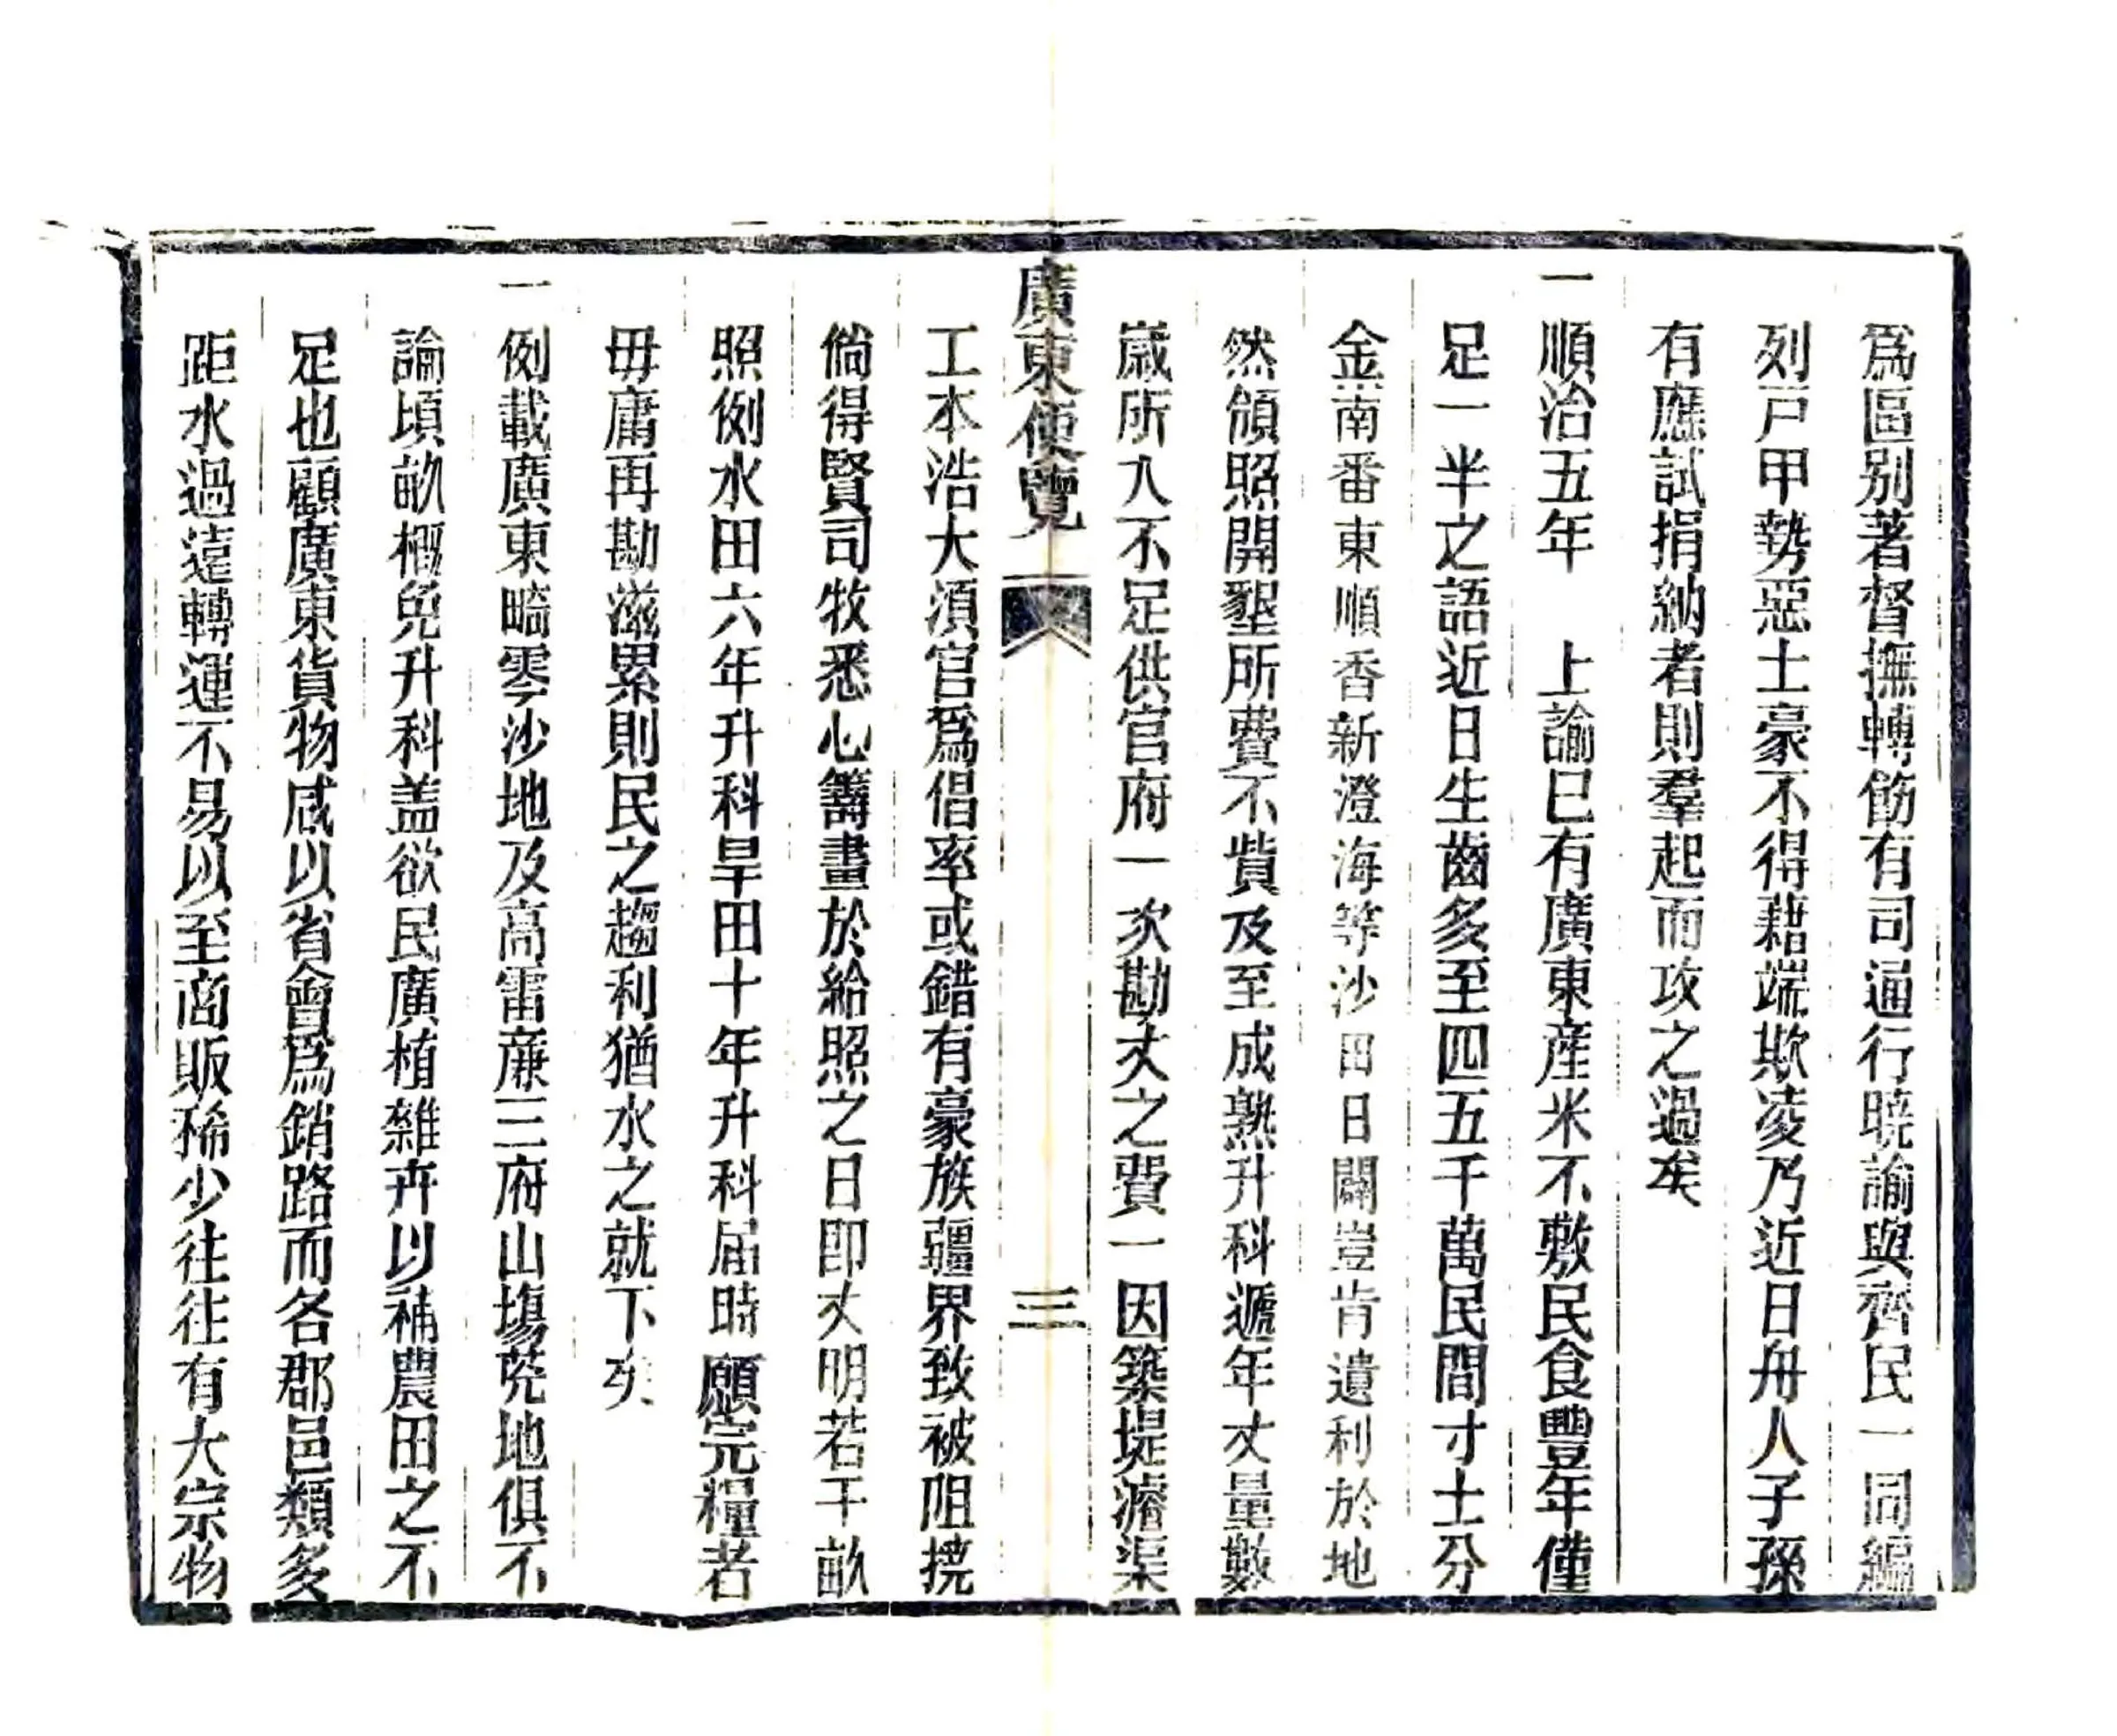 爲區別著督撫轉飭有司通行曉諭與齊民一同編
列戸甲勢惡土豪不得藉端欺凌乃近日舟人子孫
有應試捐納者則羣起而攻之過矣
一順治五年　上諭已有廣東產米不敷民食豐年僅
足一半之語近日生齒多至四五千萬民間寸土分
金南番東順香新澄海等沙田日闢豈肯遺利於地
然領照開墾所費不貲及至成熟升科遞年丈量數
歲所入不足供官府一次勘丈之費一因築堤濬渠
廣東便覽　三
工本浩大須官爲倡率或錯有豪族疆界致被阻撓
倘得賢司牧悉心籌畫於給照之日即丈明若干畝
照例水田六年升科旱田十年升科届時願完糧者
毋庸再勘滋累則民之趨利猶水之就下矣
一例載廣東畸零沙地及高雷廉三府山塲荒地俱不
論頃畝概免升科盖欲民廣植雜卉以補農田之不
足也顧廣東貨物咸以省會爲銷路而各郡邑類多
距水過遠轉運不易以至商販稀少往往有大宗物